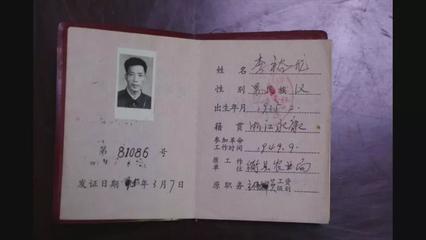 第 81086 号
发证日期 3月7日
姓名 李裕龙
性别 男 民族 汉
出生年月
籍贯 浙江永康
参加革命工作时间 1949.9.
原工作单位 农业局
原职务 工资级别